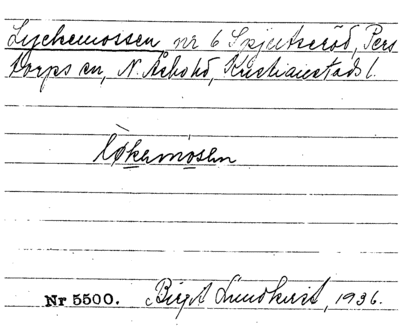 Lyckemossen, nr 6 Spjutseröd, Pers
torps sn, N. Åsbo hd, Kristianstads l.
Lökemosen
Nr 5500. Birgit Lundkvist, 1936.